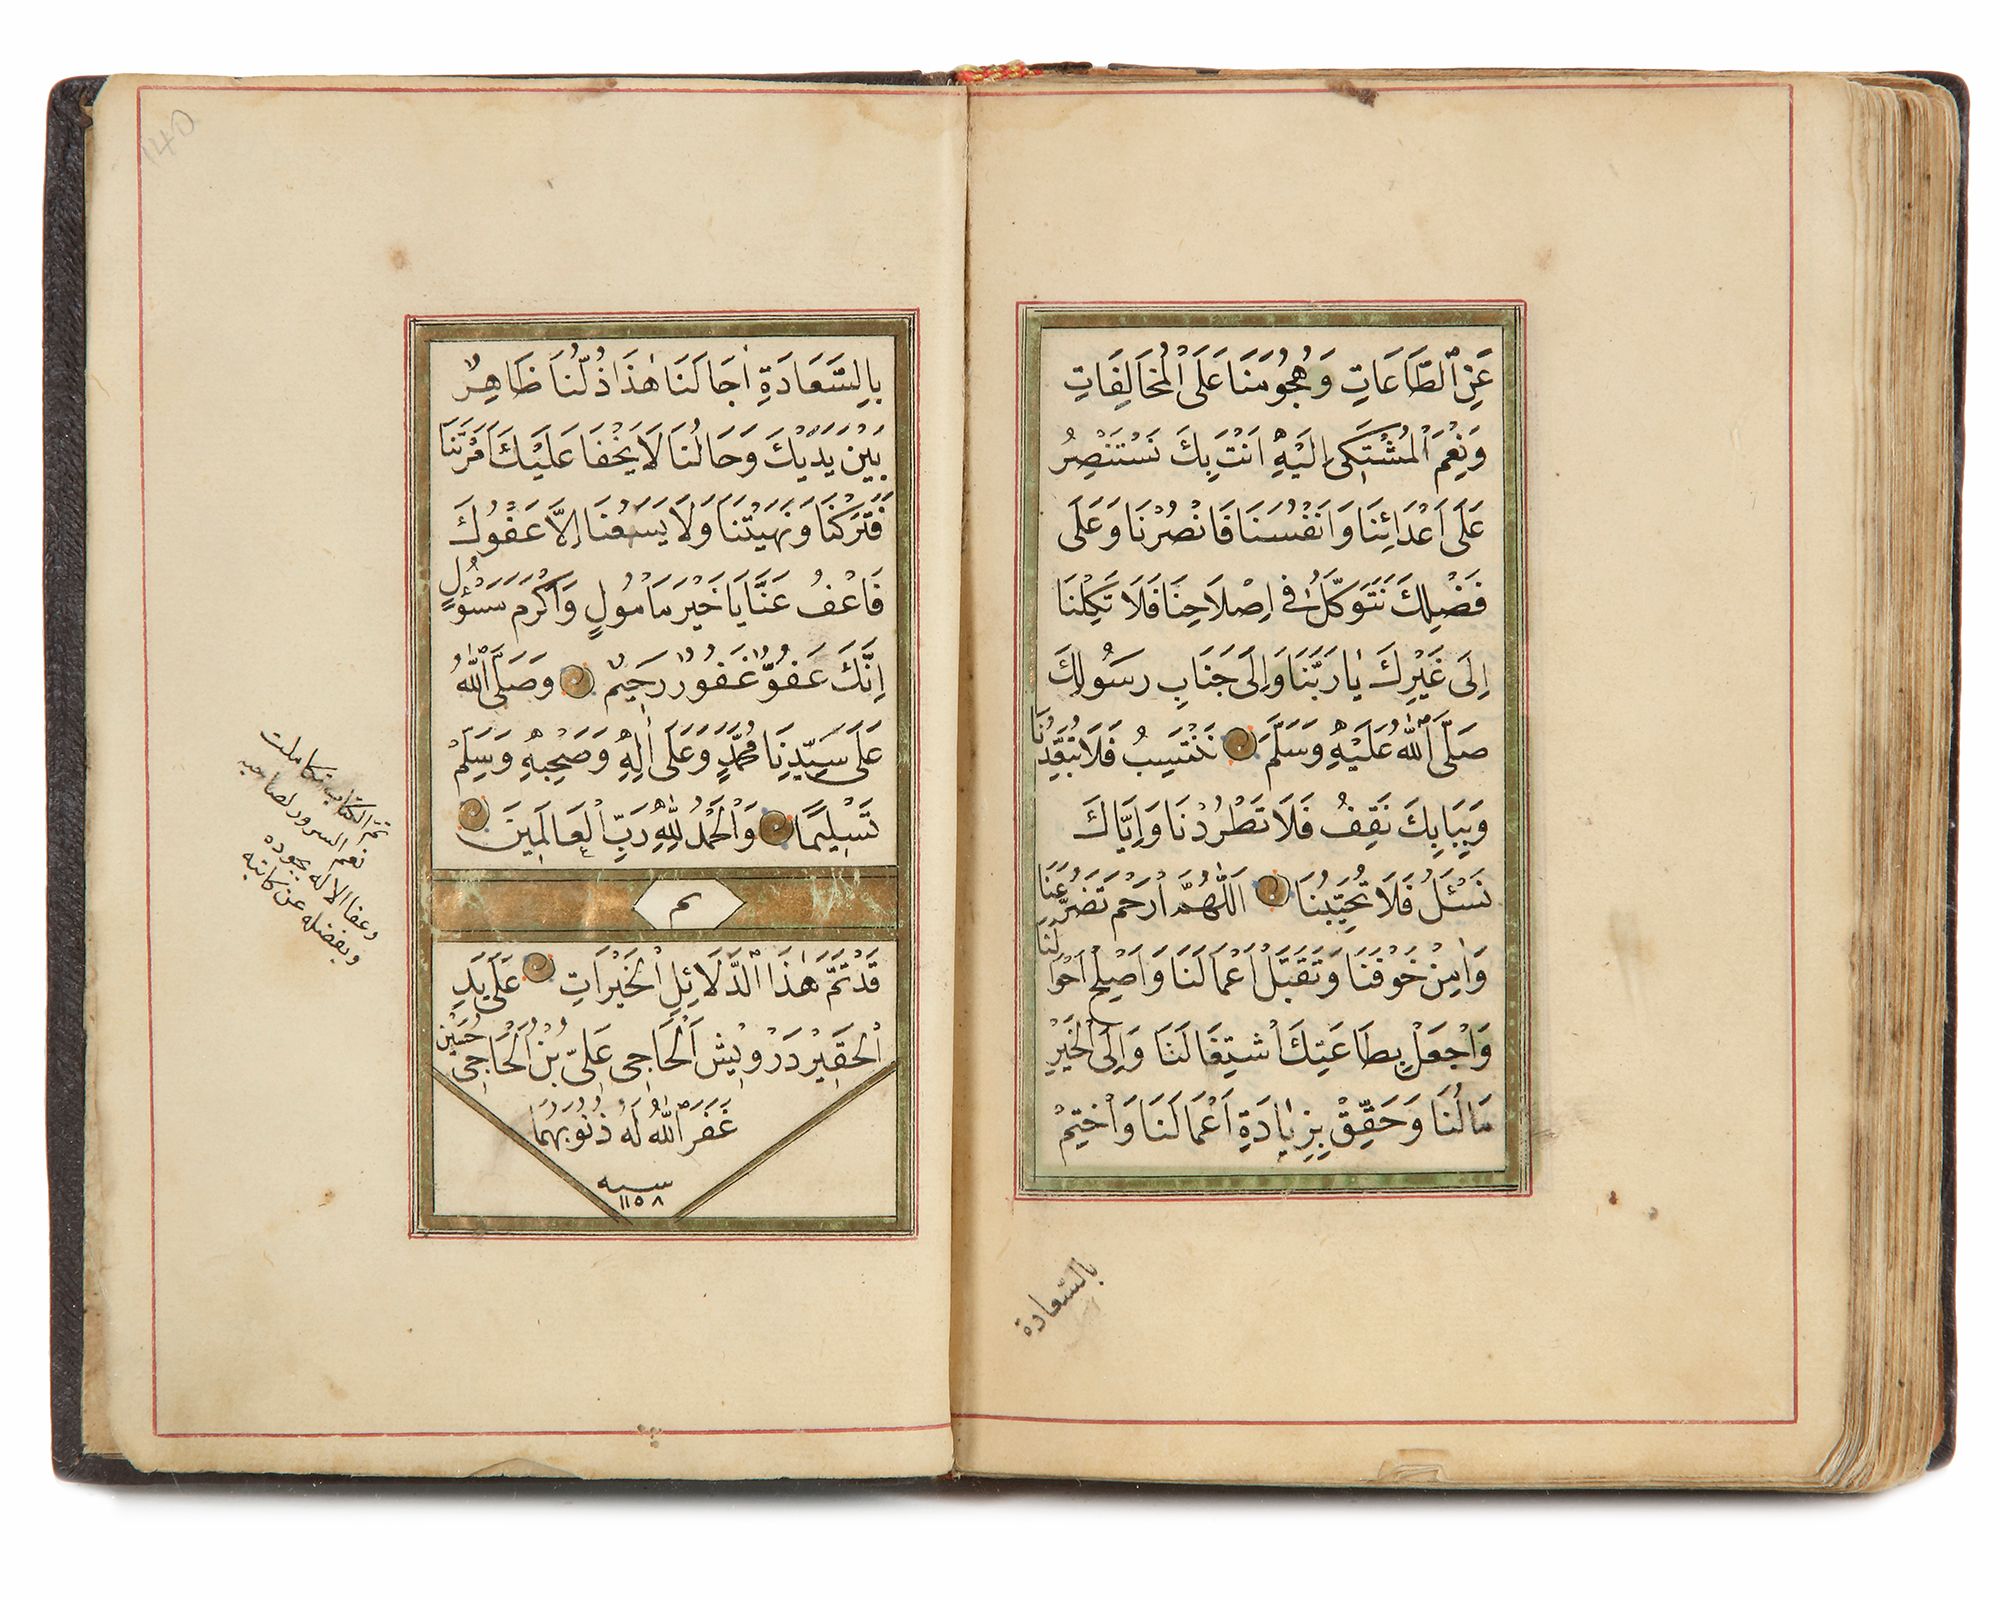 عَنِ ٱلطَّاعَاتِ وَهُجُومَنَا عَلَى ٱلْمُخَالَفَاتِ
وَنِعْمَ ٱلْمُشْتَكٰى اِلَيْهِ اَنْتَ بِكَ نَسْتَنْصِرُ
عَلَى اَعْدَائِنَا وَاَنْفُسِنَا فَانْصُرْنَا وَعَلَى
فَضْلِكَ نَتَوَكَّلُ فِي اِصْلَاحِنَا فَلَا تَكِلْنَا
اِلَى غَيْرِكَ يٰا رَبَّنَا وَاِلَى جَنَابِ رَسُولِكَ
صَلَّى ٱللّٰهُ عَلَيْهِ وَسَلَّمَ نَنْتَسِبُ فَلَا تُبَعِّدْنَا
وَبِبَابِكَ نَقِفُ فَلَا تَطْرُدْنَا وَاِيَّاكَ
نَسْئَلُ فَلَا تُخَيِّبْنَا اَللّٰهُمَّ ارْحَمْ تَضَرُّعَنَا
وَاٰمِنْ خَوْفَنَا وَتَقَبَّلْ اَعْمَالَنَا وَاَصْلِحْ اَحْوَالَنَا
وَاجْعَلْ بِطَاعَتِكَ اشْتِغَالَنَا وَاِلَى الْخَيْرِ
مَاٰلَنَا وَحَقِّقْ بِزِيٰادَةِ اَعْمَالَنَا وَاخْتِمْ
بالسعادة
بِالسَّعَادَةِ اٰجَالَنَا هٰذَا ذُلُّنَا ظَاهِرٌ
بَيْنَ يَدَيْكَ وَحَالُنَا لَا يَخْفَا عَلَيْكَ اَمَرْتَنَا
فَتَرَكْنَا وَنَهَيْتَنَا وَلَا يَسَعُنَا اِلَّا عَفْوُكَ
فَاعْفُ عَنَّا يَا خَيْرَ مَامُولٍ وَاَكْرَمَ مَسْؤُلٍ
اِنَّكَ عَفُوٌّ غَفُورٌ رَحِيمٌ وَصَلَّى ٱللّٰهُ
عَلَى سَيِّدِنَا مُحَمَّدٍ وَعَلَى اٰلِهِ وَصَحْبِهِ وَسَلِّمْ
تَسْلِيمًا وَالْحَمْدُ لِلّٰهِ رَبِّ الْعَالَمِينَ
تم
قَدْ تَمَّ هٰذَا ٱلدَّلَائِلِ الْخَيْرَاتِ عَلَى يَدِ
الْحَقِيرِ دَرْوِيش اَلْحَاجِى عَلِىّ بْنُ الْحَاجِى حُسَيْن
غَفَرَ ٱللّٰهُ لَهُ ذُنُوبَهُمَا
سنه
١١٥٨
تم الكتاب تكاملت
نعم السرور لصاحبه
وعفا الاله بجوده
وبفضله عن كاتبه
140